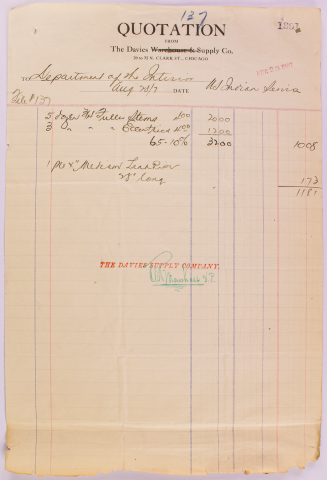 137
QUOTATION
1861
FROM
The Davies Warehouse & Supply Co.
N. CLARK ST., CHICAGO
TO Department of the Interior
Aug 28/7 DATE Indian Service
File #137
5 dozen Fuller Stems 400 2000
3 " " Eccentrics 400 1200
65-10% 3200 1008
1 pc 4" Lead
28" long 173
1181
THE DAVIES SUPPLY COMPANY.
V.P.